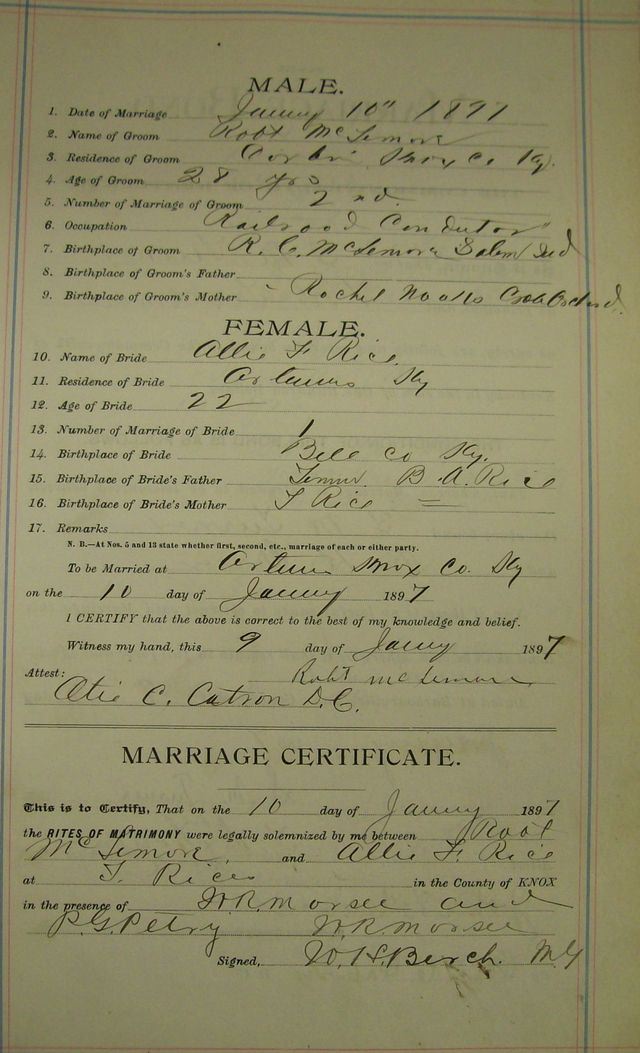 MALE.
1. Date of Marriage Janury 10" 1897
2. Name of Groom Robt McLemore
3. Residence of Groom Corbin Knox Co Ky.
4. Age of Groom 28 yrs
5. Number of Marriage of Groom 2nd.
6. Occupation Railroad Conductor
7. Birthplace of Groom R. C. McLemore Salem Ind
8. Birthplace of Groom's Father
9. Birthplace of Groom's Mother Rachel Crab Orchard.
FEMALE.
10. Name of Bride Allie F Rice
11. Residence of Bride Artemus Ky
12. Age of Bride 22
13. Number of Marriage of Bride 1
14. Birthplace of Bride Bell Co Ky.
15. Birthplace of Bride's Father Tenn. B. A. Rice
16. Birthplace of Bride's Mother Rice =
17. Remarks
N. B.—At Nos. 5 and 13 state whether first, second, etc., marriage of each or either party.
To be Married at Artemus Knox Co. Ky
on the 10 day of Janury 1897
I CERTIFY that the above is correct to the best of my knowledge and belief.
Witness my hand, this 9 day of Janury 1897
Robt McLemore
Attest:
Otie C. Catron D.C.
MARRIAGE CERTIFICATE.
This is to Certify, That on the 10 day of Janury 1897
the RITES OF MATRIMONY were legally solemnized by me between Robt
McLemore, and Allie F. Rice
at Rices in the County of KNOX
in the presence of W.R. Morsee and
P.G. Petry W R Morsee
Signed, W. H. Berch M G